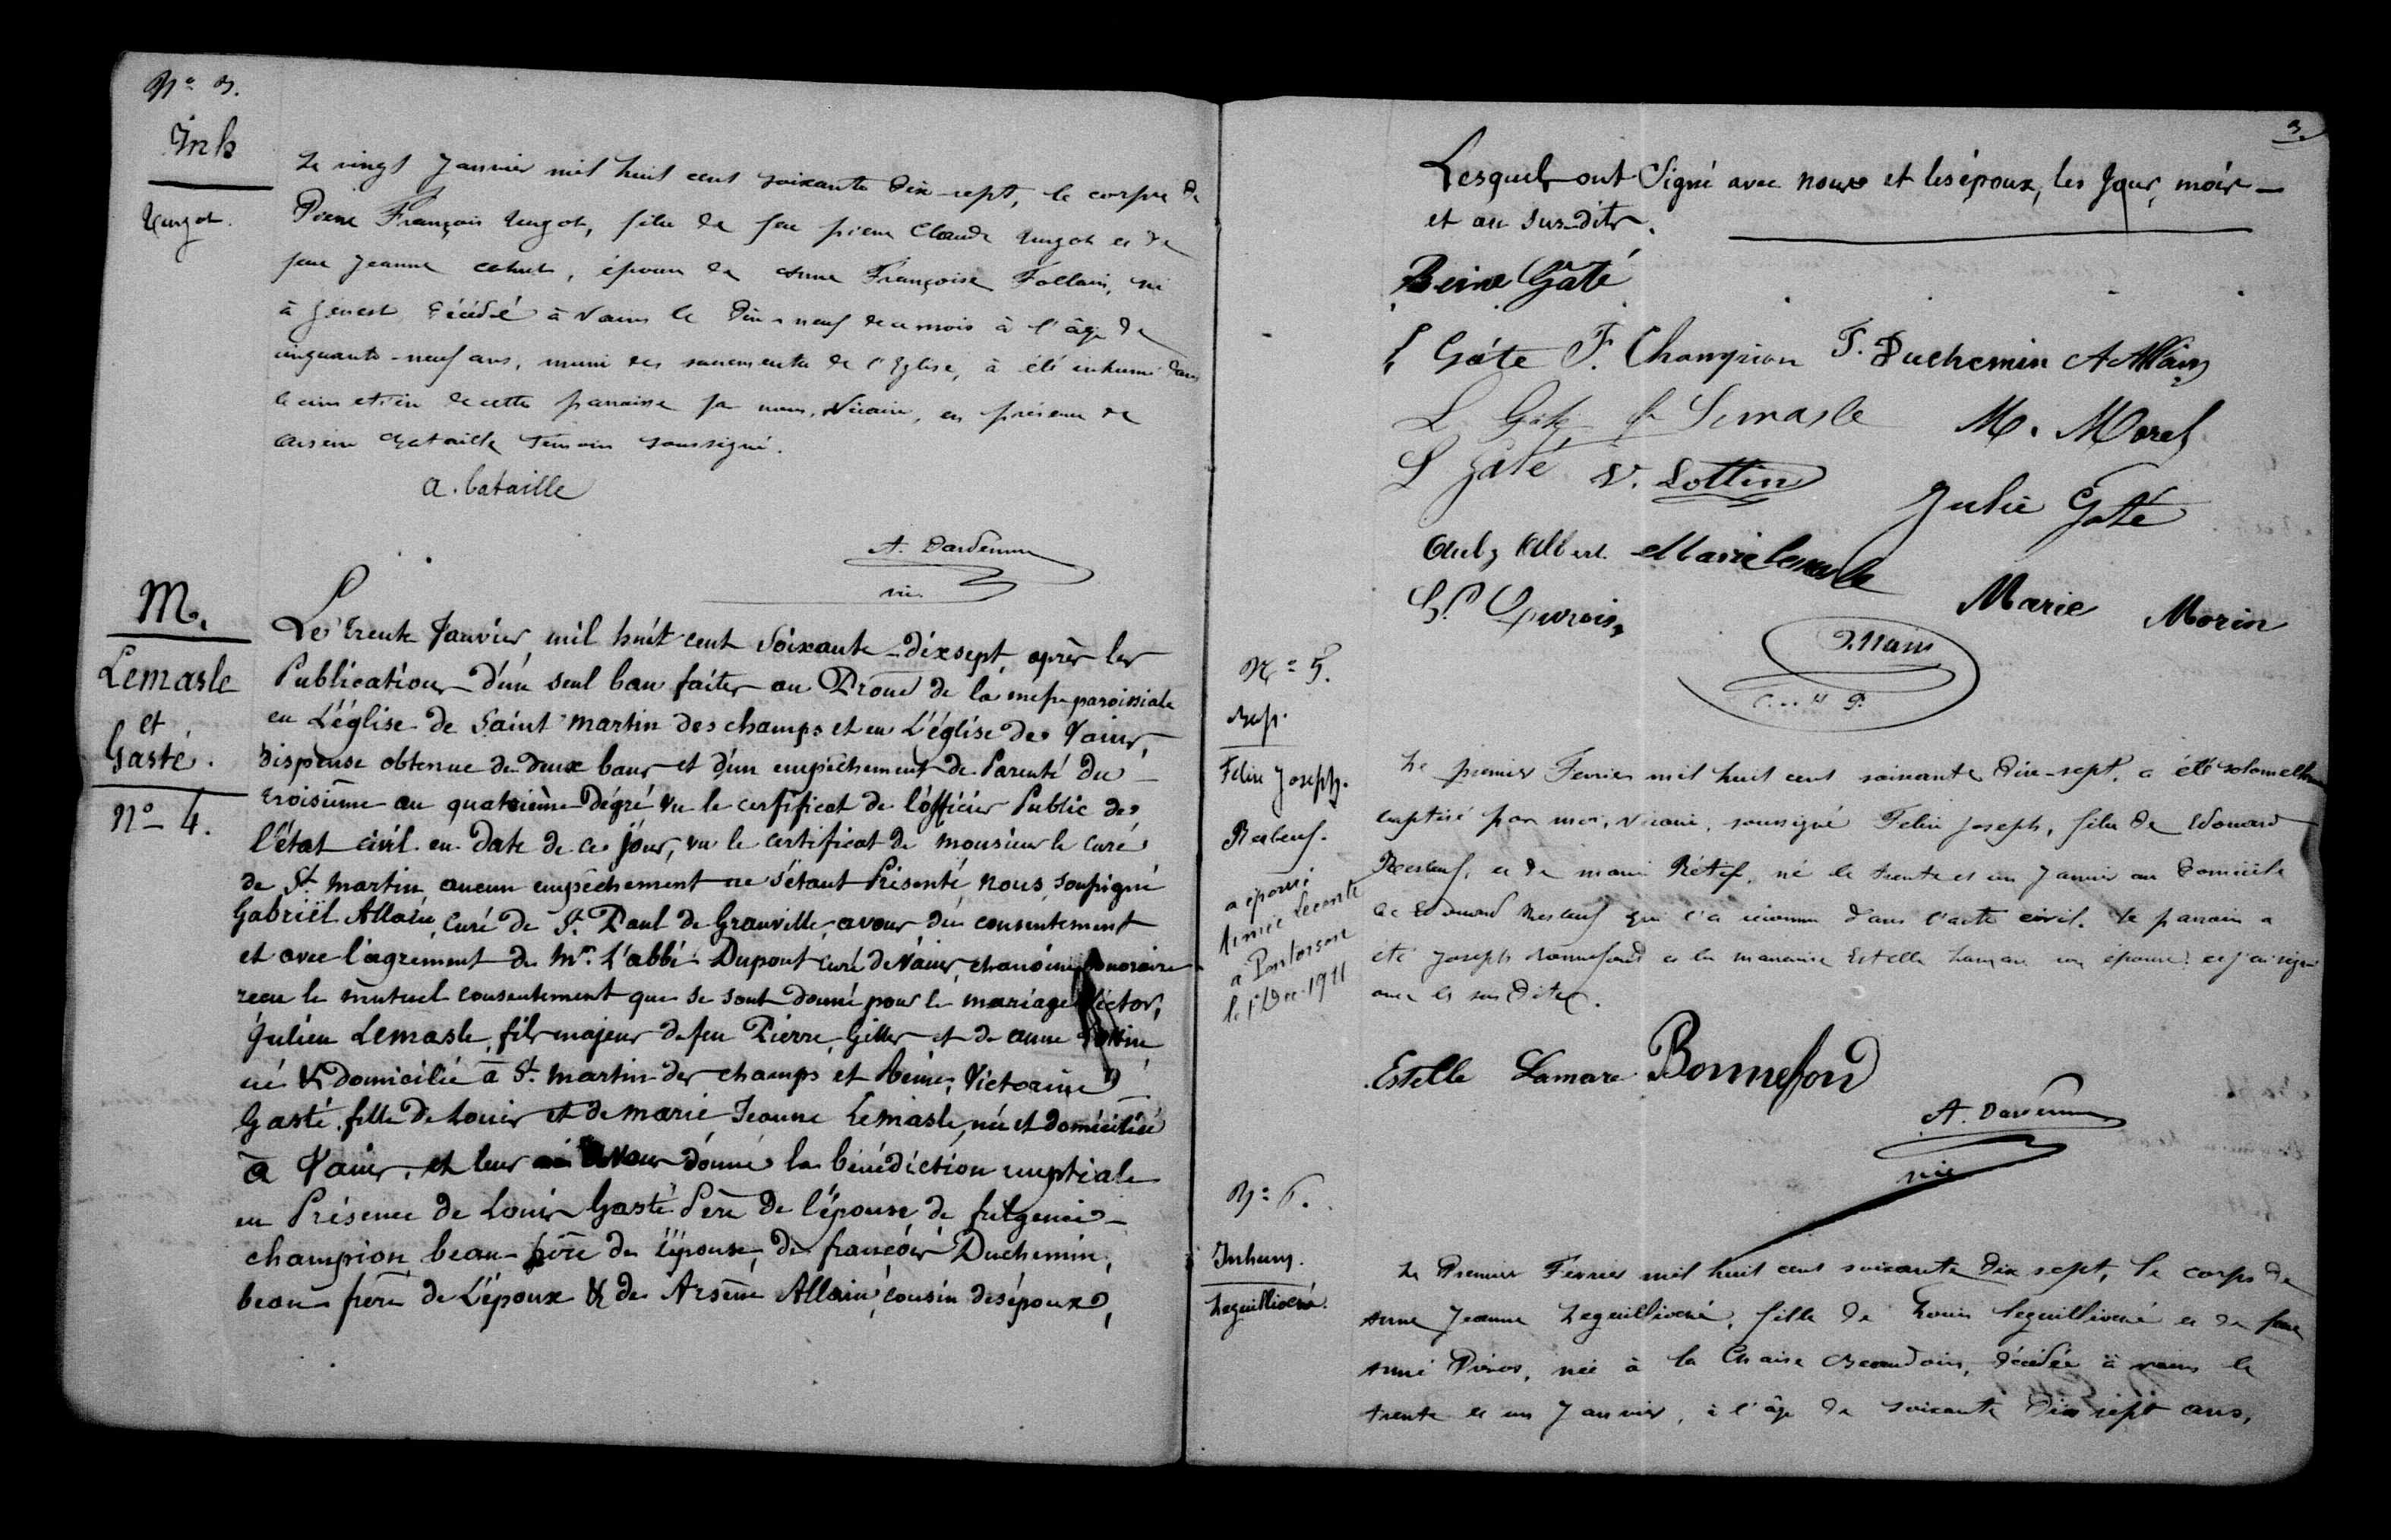 N° 3.
Inh
Turgot.
Le vingt Janvier mil huit cent soixante dix-sept, le corps de
Pierre François Turgot, fils de feu pierre Claude Turgot et de
feue Jeanne, époux de Anne Françoise Follain, né
à Genest, décédé à Vains le dix-neuf de ce mois à l'âge de
cinquante-neuf ans, muni des sacrements de l'Eglise, à été inhumé dans
le cimetière de cette paroisse par nous, Vicaire, en présence de
Arsène Bataille témoin soussigné.
a. bataille
A. Dardenne
vic.
M.
Lemasle
et
Gasté.
N° 4.
Le trente Janvier, mil huit cent Soixante-dix sept, après les
Publications d'un seul ban faites au Prône de la messe paroissiale
en L'église de Saint martin des champs et en L'église de Vains,
Dispense obtenue de deux bans et d'un empêchement de Parenté du
troisième au quatrième Dégré, vu le certificat de l'officier Public de
l'état civil en date de ce jour, vu le certificat de monsieur le curé
de St. martin, aucun empêchement ne s'étant Présenté nous, soussigné
Gabriël Allain, Curé de St. Paul de Granville, avons du consentement
et avec l'agrement de Mr. L'abbé Dupont curé de Vains, chanoine honoraire
reçu le mutuel consentement que se sont donné pour le mariage Victor,
Julien Lemasle, fils majeur de feu Pierre, Gilles et de anne Lottin
né & domicilié à St. martin des champs et Reine, Victorine
Gasté, fille de Louis et de marie Jeanne Lemasle, née et domiciliée
à Vains, et leur avons donné la bénédiction nuptiale
en Présence de Louis Gasté Père de l'épouse, de fulgence
champion, beau-frère de l'épouse, de françois Duchemin,
beau-frère de L'époux & de Arsène Allain, cousin des époux,
3.
Lesquels ont Signé avec nous et les époux, les Jour, mois
et an sus-dits.
Reine Gaté
Gaté F. Champion F. Duchemin A Allain
L Gaté Lemasle M. Morel
L Gaté V. Lottin
Julie Gaté
Albert Marie lemasle
Marie Morin
N° 5.
Bap.
Felix Joseph.
Resbeuf.
a épousé
Aimée Leconte
a Pontorson
le 1 Dec. 1911
Le premier Fevrier mil huit cent soixante dix-sept, a été solemellem
baptisé par moi, vicaire, soussigné Felix Joseph, fils de Edouard
Resbeuf, et de marie Rétif, né le trente et un Janvier au domicile
de Edouard Resbeuf qui l'a reconnu dans l'acte civil. Le parrain a
été Joseph Bonnefond et la marraine Estelle Lamare son épouse et j'ai signé
avec les sus dites.
Estelle Lamare Bonnefond
A. Dardenne
vic
N° 6.
Inhum.
Leguilliochet.
Le Premier Fevrier mil huit cent soixante dix sept, le corps de
Anne Jeanne, fille de Louis et de feue
Anne, née à la Chaise Beaudoin, décédée à vains le
trente et un Janvier, à l'âge de soixante dix sept ans,